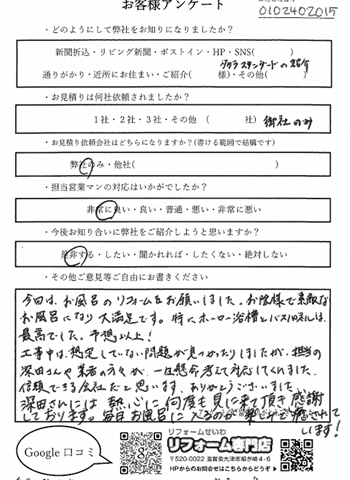 お客様アンケート
0102402015
・どのようにして弊社をお知りになりましたか？
新聞折込・リビング新聞・ポストイン・HP・SNS(　　)
タカラスタンダードの紹介
通りがかり・近所にお住まい・ご紹介(　　様)・その他(　　)
・お見積りは何社依頼されましたか？
1社・2社・3社・その他　(　　社) 御社のみ
・お見積り依頼会社はどちらになりますか？(書ける範囲で結構です)
弊社のみ・他社(　　)
・担当営業マンの対応はいかがでしたか？
非常に良い・良い・普通・悪い・非常に悪い
・今後お知り合いに弊社をご紹介しようと思いますか？
是非する・したい・聞かれれば・したくない・絶対しない
・その他ご意見等ご自由にお書きください
今回は、お風呂のリフォームをお願いしました。お陰様で素敵な
お風呂になり大満足です。特にホーロー浴槽とバスパネルは、
最高でした。予想以上！
工事中は、想定していない問題が見つかりましたが、担当の
深田さんや業者の方々が、一生懸命考えて対応してくれました。
信頼できる会社だと思います。ありがとうございました。
深田さんには熱心に何度も見に来て頂き感謝
しております。毎日お風呂に入るのが楽しみで癒されて
います！
Google 口コミ
リフォームせいわ
リフォーム専門店
〒520-0022 滋賀県大津市柳が崎4-6
HPからのお問合せはこちらからどうぞ